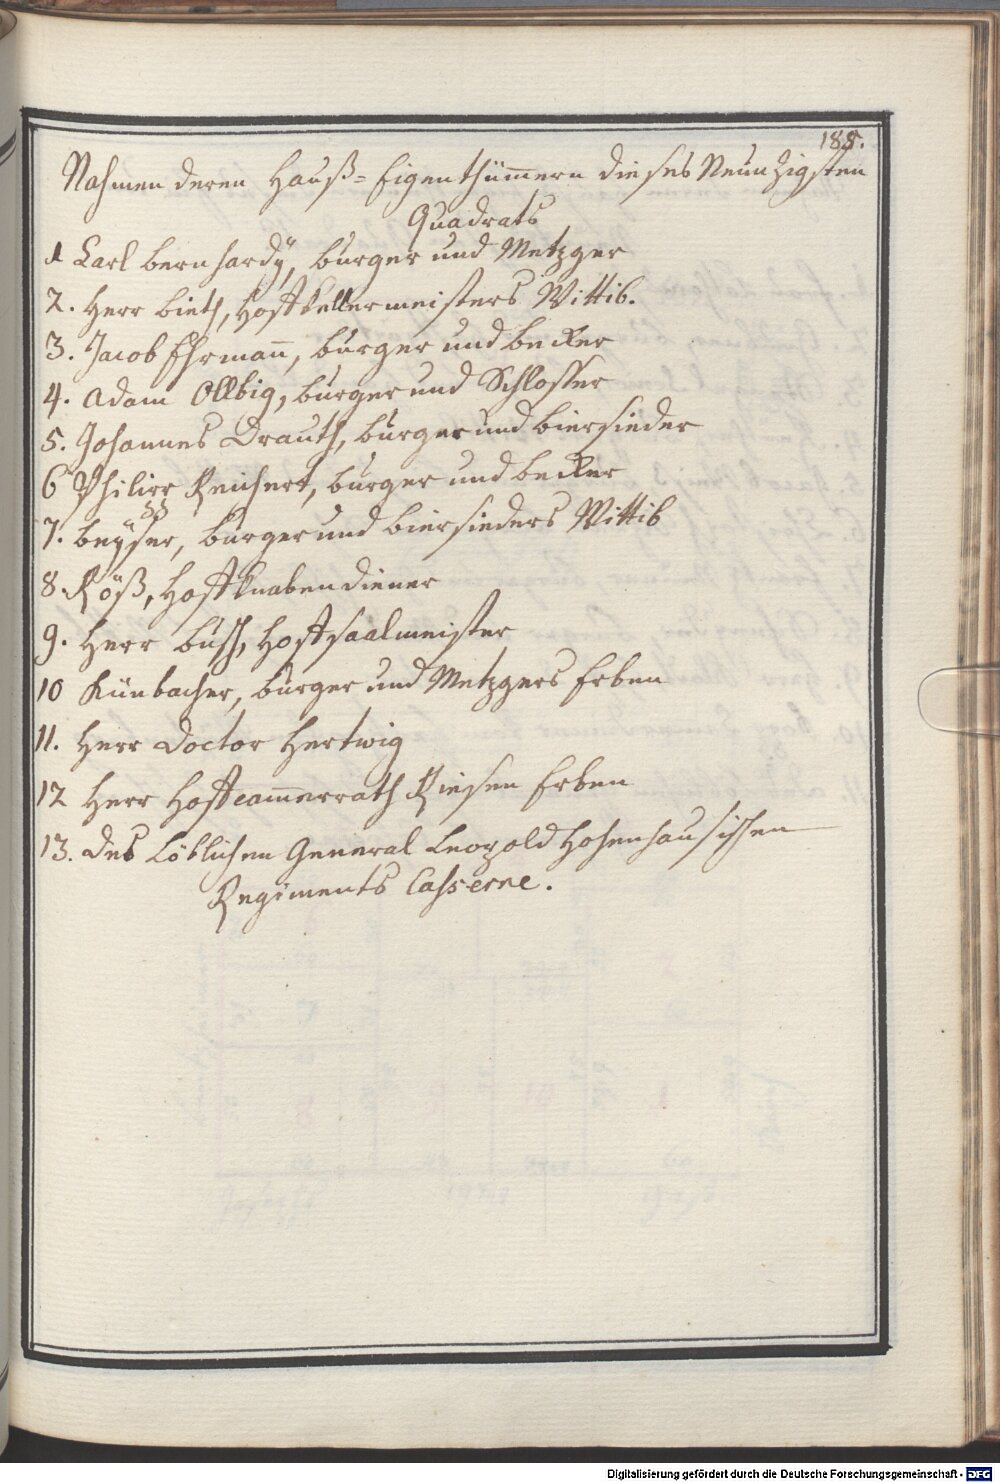 185.
Nahmen deren Hauß=Eigenthüm̄ern dieses Neunzigsten
Quadrats
1 Carl Bernhardÿ, burger und Metzger
2. Herr Bieth, Hoffkellermeisters Wittib.
3. Jacob Ehrman̄, burger und becker
4. Adam Ollbig, burger und Schlosser
5. Johannes Drauth, burger und biersieder
6 Philipp Reichert, burger und becker
7. Beÿser, burger und biersieders Wittib
8. Röß, Hoffknabendiener
9. Herr Busch, Hoffsaalmeister
10 Künbacher, burger und Metzgers Erben
11. Herr Doctor Hertwig
12 Herr Hoffcam̄errath Riesen Erben
13. Des Löblichen General Leopold Hohenhausischen
Regiments Casserne.
Digitalisierung gefördert durch die Deutsche Forschungsgemeinschaft - DFG